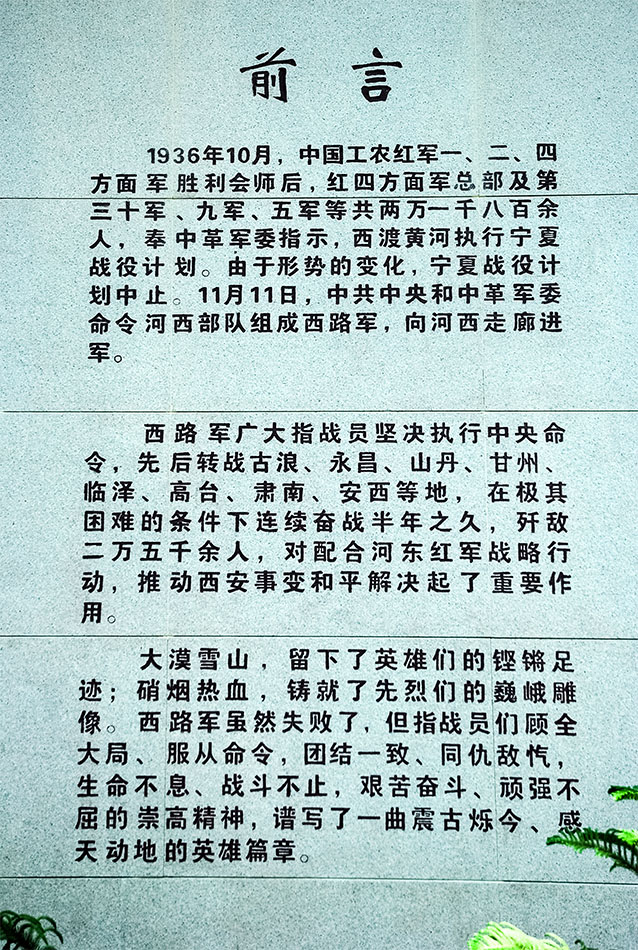 前言
1936年10月，中国工农红军一、二、四
方面军胜利会师后，红四方面军总部及第
三十军、九军、五军等共两万一千八百余
人，奉中革军委指示，西渡黄河执行宁夏
战役计划。由于形势的变化，宁夏战役计
划中止。11月11日，中共中央和中革军委
命令河西部队组成西路军，向河西走廊进
军。
西路军广大指战员坚决执行中央命
令，先后转战古浪、永昌、山丹、甘州、
临泽、高台、肃南、安西等地，在极其
困难的条件下连续奋战半年之久，歼敌
二万五千余人，对配合河东红军战略行
动，推动西安事变和平解决起了重要作
用。
大漠雪山，留下了英雄们的铿锵足
迹；硝烟热血，铸就了先烈们的巍峨雕
像。西路军虽然失败了，但指战员们顾全
大局、服从命令，团结一致、同仇敌忾，
生命不息、战斗不止，艰苦奋斗、顽强不
屈的崇高精神，谱写了一曲震古烁今、感
天动地的英雄篇章。